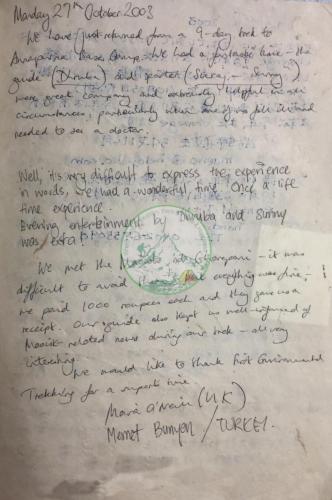 Monday 27th October 2003
We have just returned from a 9-day trek to
Annapurna Base Camp. We had a fantastic time - the
guide (Dhruba) and porter (- Sunny)
were great company and extremely helpful in all
circumstances, particularly when one of us fell ill and
needed to see a doctor.
Well, it's very difficult to express the experience
in words, we had a wonderful time. Once a life
time experience.
Evening entertainment by Dhruba and Sunny
was extra!
We met the Maoists in Ghorepani - it was
difficult to avoid but everything was fine -
we paid 1000 roupees each and they gave us a
receipt. Our guide also kept us well-informed of
Maoist-related news during our trek - all very
interesting.
We would like to thank First Environmental
Trekking for a superb time.
Maria (UK)
Memet / TURKEY.